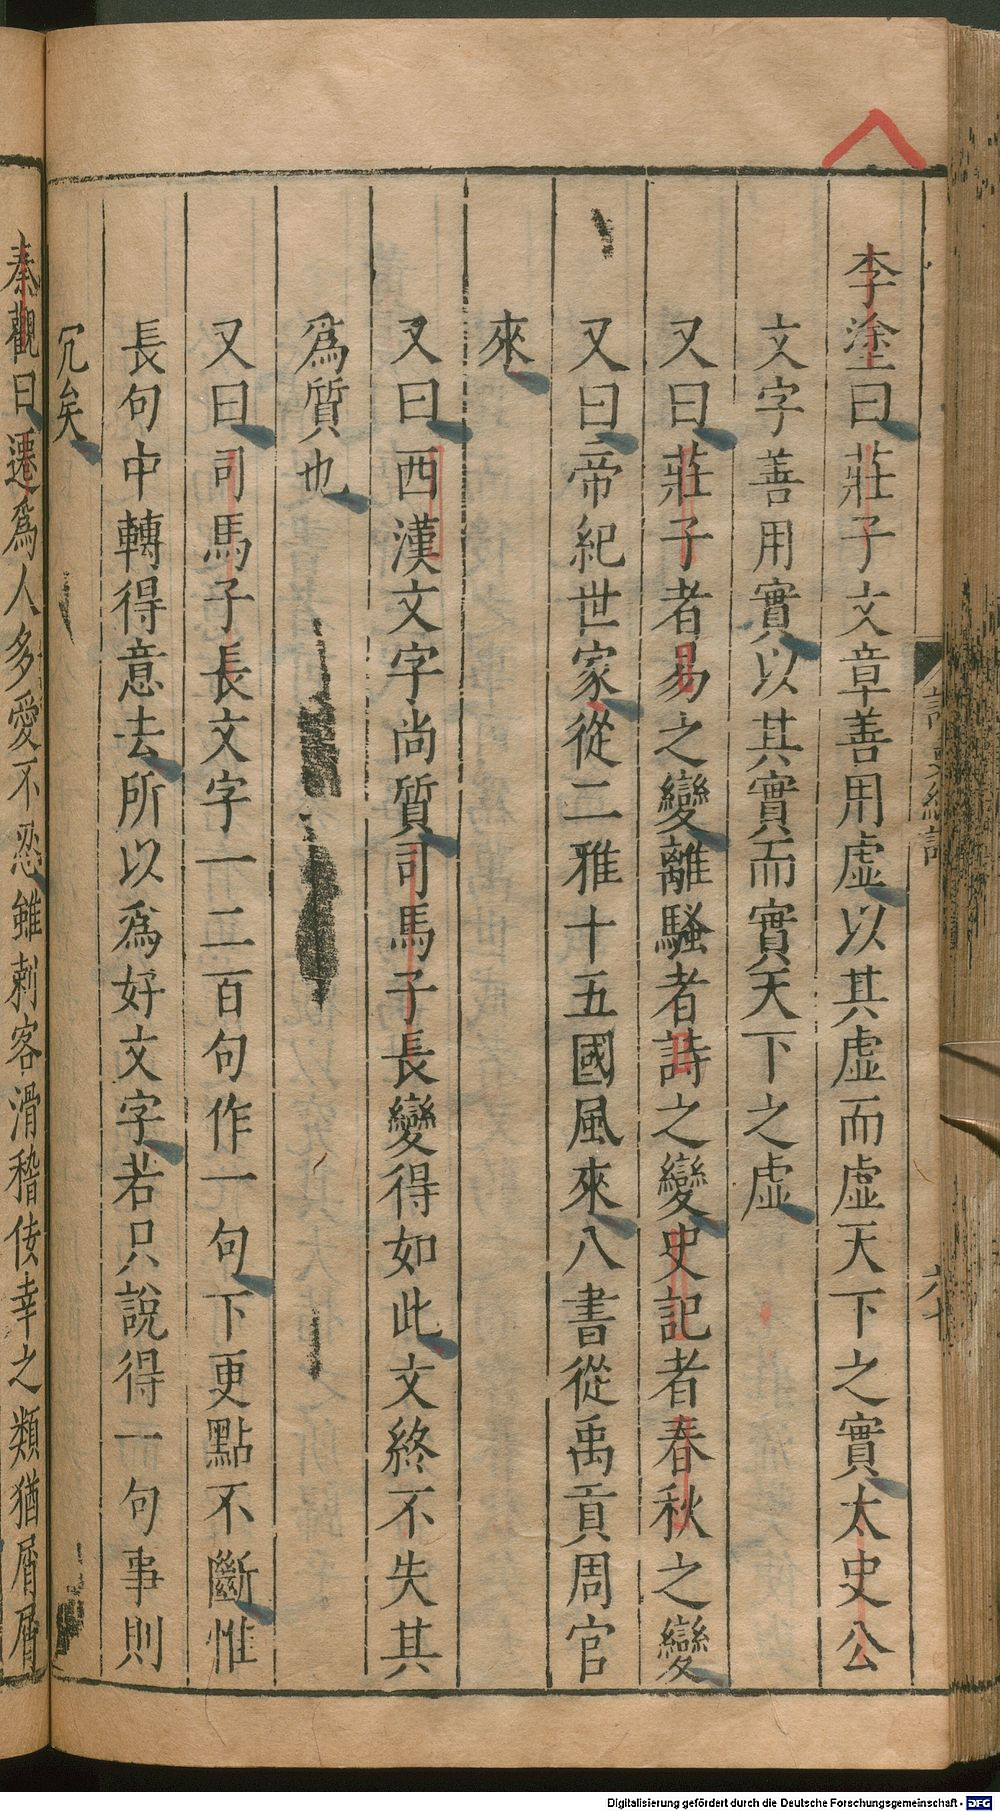 李塗曰莊子文章善用虛以其虛而虛天下之實太史公
文字善用實以其實而實天下之虛
又曰莊子者易之變離騷者詩之變史記者春秋之變
又曰帝紀世家從二雅十五國風來八書從禹貢周官
來
又曰西漢文字尚質司馬子長變得如此文終不失其
爲質也
又曰司馬子長文字一二百句作一句下更點不斷惟
長句中轉得意去所以爲好文字若只說得一句事則
冗矣
秦觀曰遷爲人多愛不忍雖刺客滑稽佞幸之類猶屑屑
Digitalisierung gefördert durch die Deutsche Forschungsgemeinschaft - DFG